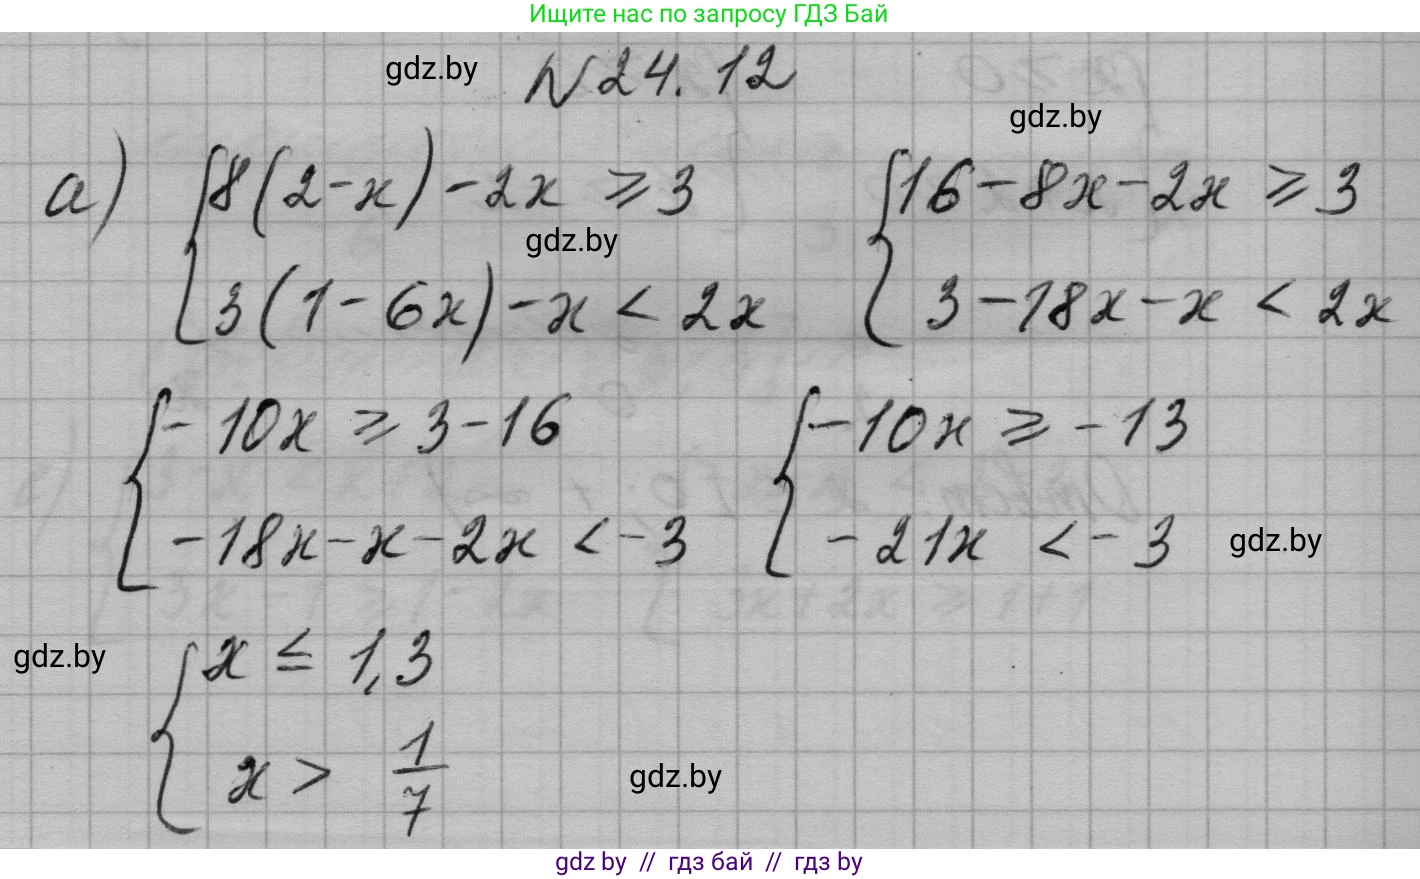 Ищите нас по запросу ГДЗ Бай
gdz.by
№ 24.12
gdz.by
а) { 8(2-x)-2x ≥ 3 { 16-8x-2x ≥ 3
gdz.by
3(1-6x)-x < 2x 3-18x-x < 2x
{ -10x ≥ 3-16 { -10x ≥ -13
-18x-x-2x < -3 -21x < -3
gdz.by
gdz.by
{ x ≤ 1,3
x > 1/7
gdz.by
gdz by // гдз бай // гдз by